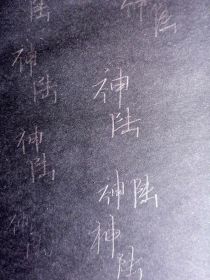 陆
神 陆
神
陆
神
陆
神
陆
神 陆
神
陆
神